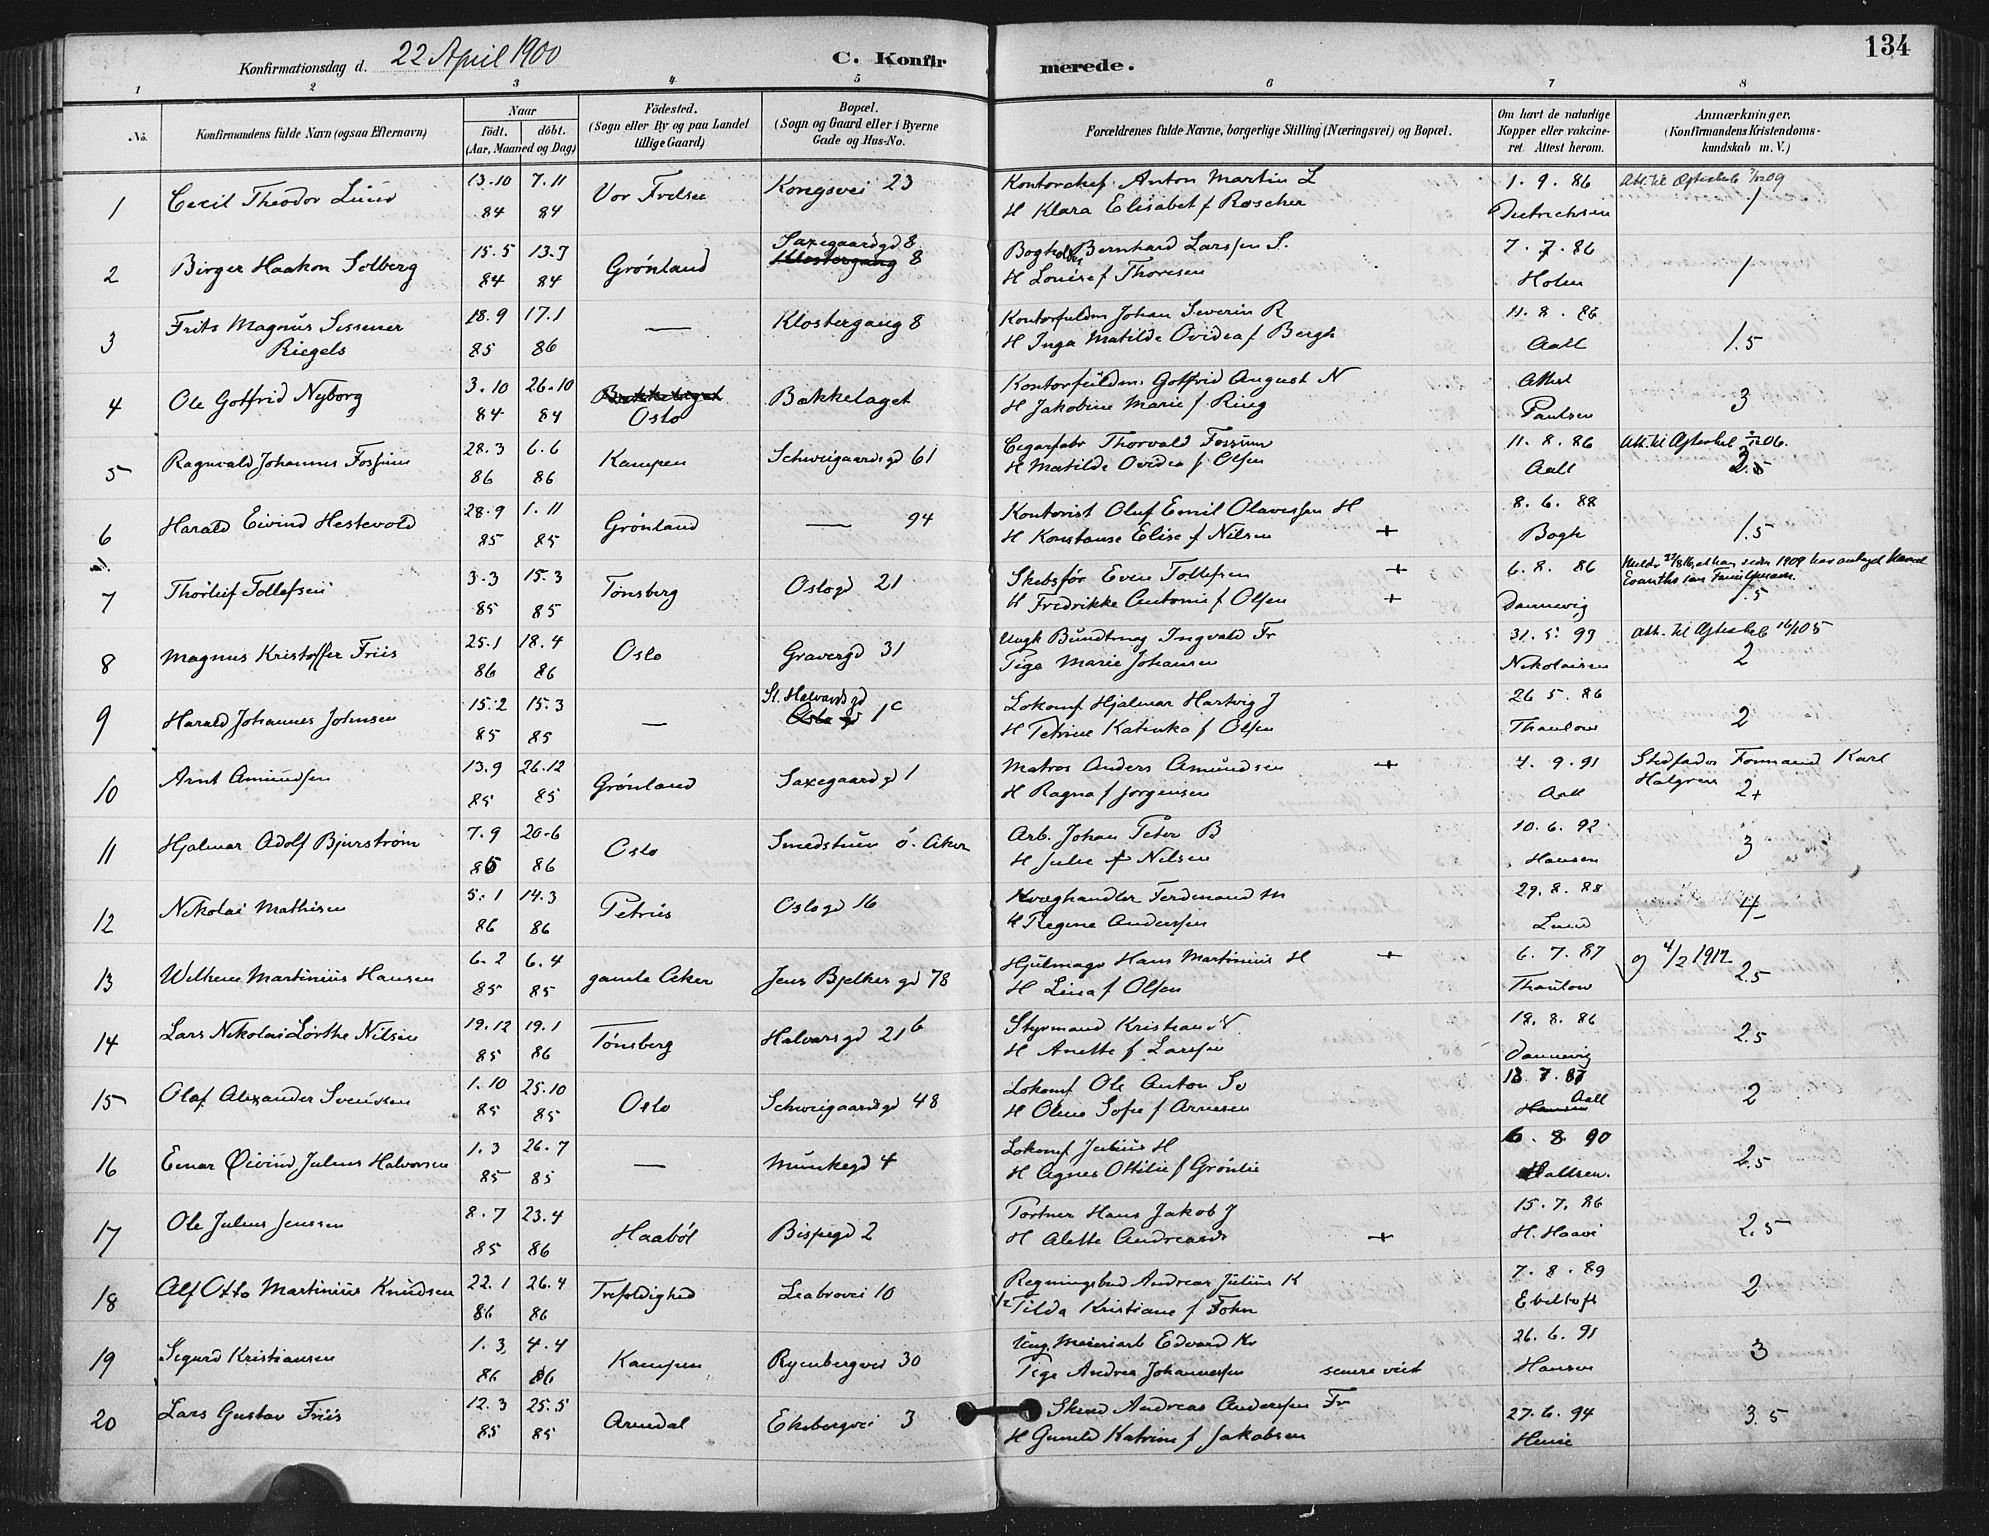 134
Konfirmationsdag d. 22 April 1900
C. Konfirmerede.
1 2 3 4 5 6 7 8
No.
Konfirmandens fulde Navn (ogsaa Efternavn)
Naar
födt. döbt.
(Aar, Maaned og Dag)
Födested.
(Sogn eller By og paa Landet
tillige Gaard)
Bopæl.
(Sogn og Gaard eller i Byerne
Gade og Hus-No.
Forældrenes fulde Navne, borgerlige Stilling (Næringsvei) og Bopæl.
Om havt de naturlige
Kopper eller vakcine-
ret. Attest herom.
Anmærkninger,
(Konfirmandens Kristendoms-
kundskab m. V.)
1 Cecil Theodor Lund 13.10 84 7.11 84 Vor Frelser Kongsvei 23
Kontorchef. Anton Martin L
H Klara Elisabet f Roscher
1. 9. 86 Dietrichson 1
2 Birger Haakon Solberg 15.5 84 13.7 84 Grönland Saxegaardgd 8
Klostergang 8
Bogholder Bernhard Larssen S.
H Louise f Thoresen
7. 7. 86 Holm 1
3 Frits Magnus Sissener
Riegels 18.9 85 17.1 86 — Klostergang 8
Kontorfuldm Johan Severin R
H Inga Matilde Ovidea f Bergh
11. 8. 86 Aall 1.5
4 Ole Gotfrid Nyborg 3.10 84 26.10 84 Bækkelaget
Oslo Bækkelaget
Kontorfuldm. Gotfrid August N
H Jakobine Marie f Ring
Attest Paulsen 3
5 Ragnvald Johannes Fossum 28.3 86 6.6 86 Kampen Schweigaardsgd 61
Cigarfabr Thorvald Fossum
H Matilde Ovidea f Olsen
11. 8. 86 Aall 2.5
6 Harald Eivind Hestevold 28.9 85 1.11 85 Grönland — 94
Kontorist Oluf Emil Olavessen H
H Konstanse Elise f Nilsen +
8. 6. 88 Bogh 1.5
7 Thorleif Tollefsen 3.3 85 15.3 85 Tönsberg Oslogd 21
Skibsför Even Tollefsen +
H Fredrikke Antonie f Olsen +
6. 8. 86 Dannevig 1.5
8 Magnus Kristoffer Friis 25.1 86 18.4 86 Oslo Gravergd 31
Ungk Bundtmag Ingvald Fr
Pige Marie Johansen
31. 5. 99 Nikolaisen Att. til Ægteskab 16/1 05
2
9 Harald Johannes Johnsen 15.2 85 15.3 85 — St. Halvardsgd
Oslo gd 1c
Lokomf Hjalmar Hartvig J
H Petrine Katinka f Olsen
26 5. 86 Thaulow 2
10 Arnt Amundsen 13.9 85 26.12 85 Grönland Saxegaardgd 1
Matros Anders Amundsen +
H Ragna f Jørgensen
4. 9. 91 Aall Stedfader Formand Karl
Halgren 2+
11 Hjalmar Adolf Bjurström 7.9 85 20.6 86 Oslo Smedstuen ö. Aker
Arb. Johan Peter B
H Julie f Nilsen
10. 6. 92 Hansen 3
12 Nikolai Mathisen 5.1 86 14.3 86 Petrus Oslogd 16
Kvæghandler Ferdinand M
H Regine Andersen
29. 8. 88 Lund 4
13 Wilhelm Martinius Hansen 6.2 85 6.4 85 gamle Aker Jens Bjelkes gd 78
Hjulmager Hans Martinius H +
H Lina f Olsen
6. 7. 87 Thaulow 4/2 1912
2.5
14 Lars Nikolai Lorthe Nilsen 19.12 85 19.1 86 Tönsberg Halvarsgd 21b
Styrmand Kristian N
H Anette f Larsen
18. 8. 86 Dannevig 2.5
15 Olaf Alexander Svendsen 1.10 85 25.10 85 Oslo Schweigaardsgd 48
Lokomf Ole Anton Sv
H Oline Sofie f Arnesen
13. 7. 87 Hansen Aall 2
16 Einar Øivind Julius Halvorsen 1.3 85 26.7 85 — Munkegd 4
Lokomf Julius H
H Agnes Ottilie f Grönlie
6. 8. 90 2.5
17 Ole Julius Jenssen 8.7 85 23.4 86 Haaböl Bispegd 2
Portner Hans Jakob J
H Alette Andreasd +
15. 7. 86 H. Haave 2.5
18 Alf Otto Martinius Knudsen 22.1 86 26.4 86 Trefoldighed Leabrovei 10
Regningsbud Andreas Julius K
Tilda Kristiane f John
7. 8. 89 Ebeltoft 2
19 Sigurd Kristiansen 1.3 86 4.4 86 Kampen Ryenbergvei 30
Ung. Meieriarb Edvard Kr
Pige Andrea Johannessen senere viet
26. 6. 91 Hansen 3
20 Lars Gustav Friis 12.3 85 25.5 85 Arendal Ekebergvei 3
Skind Andreas Andersen Fr
H Gunild Katrine f Jakobsen
27. 6. 94 3.5